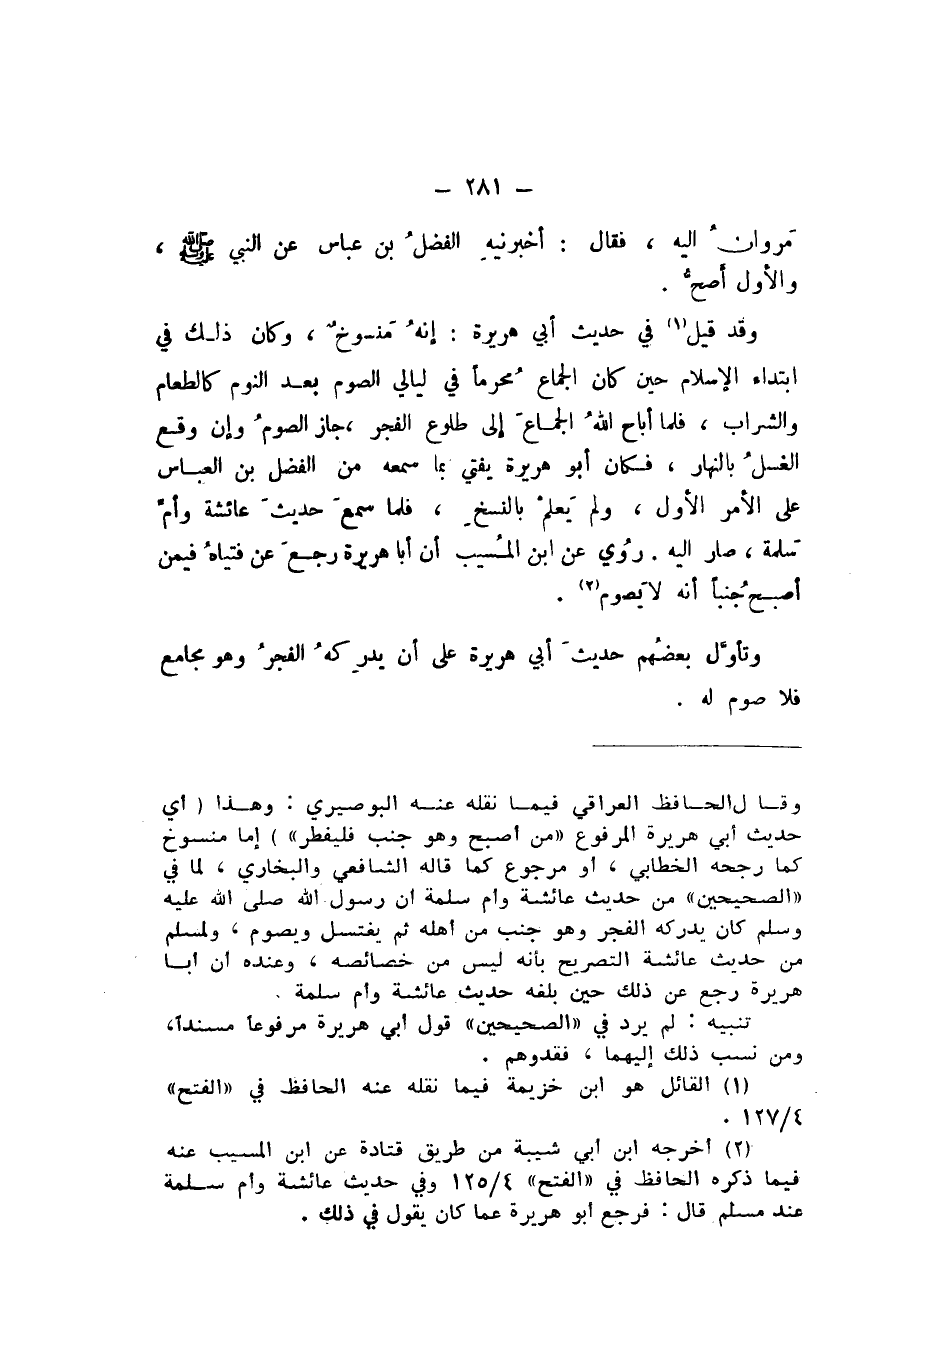 – ٢٨١ –
مَروانُ اليه ، فقال : أخبرنيهِ الفضلُ بن عباس عن النبي ﷺ ،
والأول أصحُّ .
وقد قيل(١) في حديث أبي هريرة : إنهُ مَنسوخٌ ، وكان ذلك في
ابتداء الإسلام حين كان الجماع مُحرماً في ليالي الصوم بعد النوم كالطعام
والشراب ، فلما أباح اللهُ الجماعَ إلى طلوع الفجر ،جاز الصومُ وإن وقع
الغسلُ بالنهار ، فكان أبو هريرة يفتي بما سمعه من الفضل بن العباس
على الأمر الأول ، ولم يَعلمْ بالنسخِ ، فلما سمعَ حديثَ عائشة وأمِّ
سَلمة ، صار اليه . رُوي عن ابن المُسيب أن أبا هريرة رجعَ عن فتياهُ فيمن
أصبح جُنباً أنه لا يَصوم(٢) .
وتأوَّل بعضُهم حديثَ أبي هريرة على أن يدرِكهُ الفجرُ وهو مجامع
فلا صوم له .
وقا ل الحافظ العراقي فيما نقله عنه البوصيري : وهذا ( أي
حديث أبي هريرة المرفوع «من أصبح وهو جنب فليفطر» ) إما منسوخ
كما رجحه الخطابي ، أو مرجوع كما قاله الشافعي والبخاري ، لما في
«الصحيحين» من حديث عائشة وأم سلمة أن رسول الله صلى الله عليه
وسلم كان يدركه الفجر وهو جنب من أهله ثم يغتسل ويصوم ، ولمسلم
من حديث عائشة التصريح بأنه ليس من خصائصه ، وعنده أن أبا
هريرة رجع عن ذلك حين بلغه حديث عائشة وأم سلمة .
تنبيه : لم يرد في «الصحيحين» قول أبي هريرة مرفوعاً مسنداً،
ومن نسب ذلك إليهما ، فقدوهم .
(١) القائل هو ابن خزيمة فيما نقله عنه الحافظ في «الفتح»
١٢٧/٤ .
(٢) أخرجه ابن أبي شيبة من طريق قتادة عن ابن المسيب عنه
فيما ذكره الحافظ في «الفتح» ١٢٥/٤ وفي حديث عائشة وأم سلمة
عند مسلم قال : فرجع أبو هريرة عما كان يقول في ذلك .